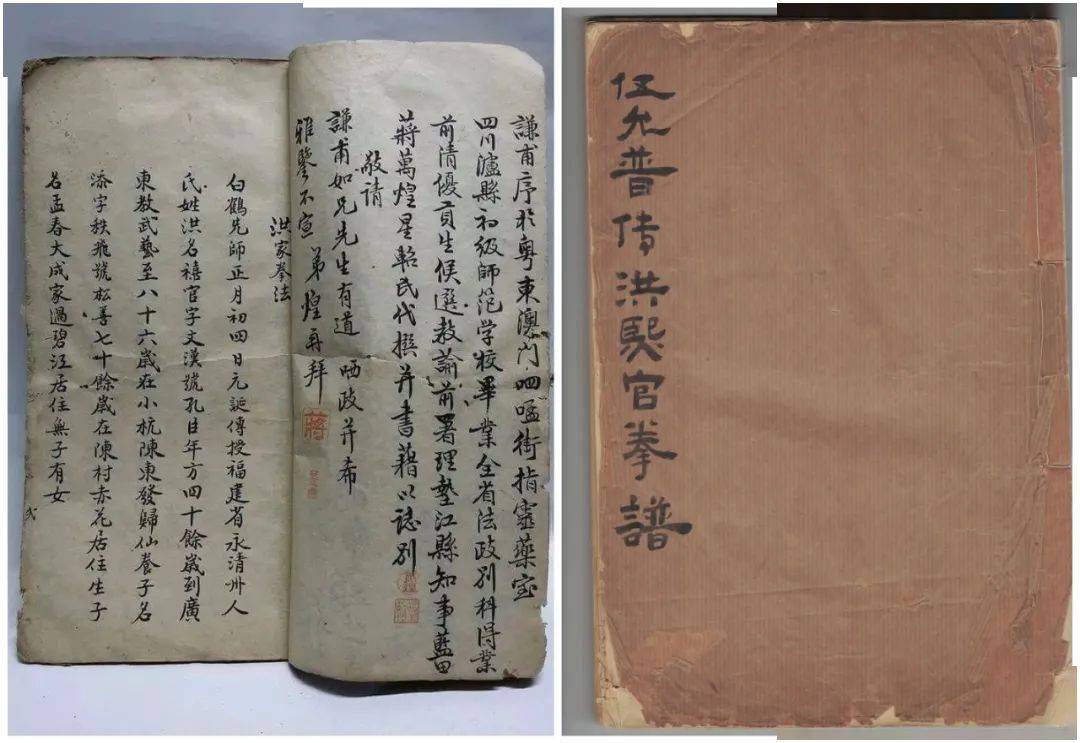 謙甫序於粵東澳門呬嗌街指靈藥室
四川瀘縣初級師范学校畢業全省法政別科得業
前清優貢生候選教諭前署理墊江縣知事藍田
蔣萬煌星軺氏代撰并書藉以誌別
敬請
謙甫如兄先生有道 哂政并希
雅鑒不宣 弟煌再拜
蔣
洪家拳法
白鶴先師正月初四日元誕傳授福建省永清州人
氏姓洪名禧官字文漢號孔日年方四十餘歲到廣
東教武藝至八十六歲在小杭陳東發歸仙養子名
添字秩飛號松善七十餘歲在陳村赤花居住生子
名孟春大成家過碧江居住無子有女
弍
伍允普传洪熙官拳譜